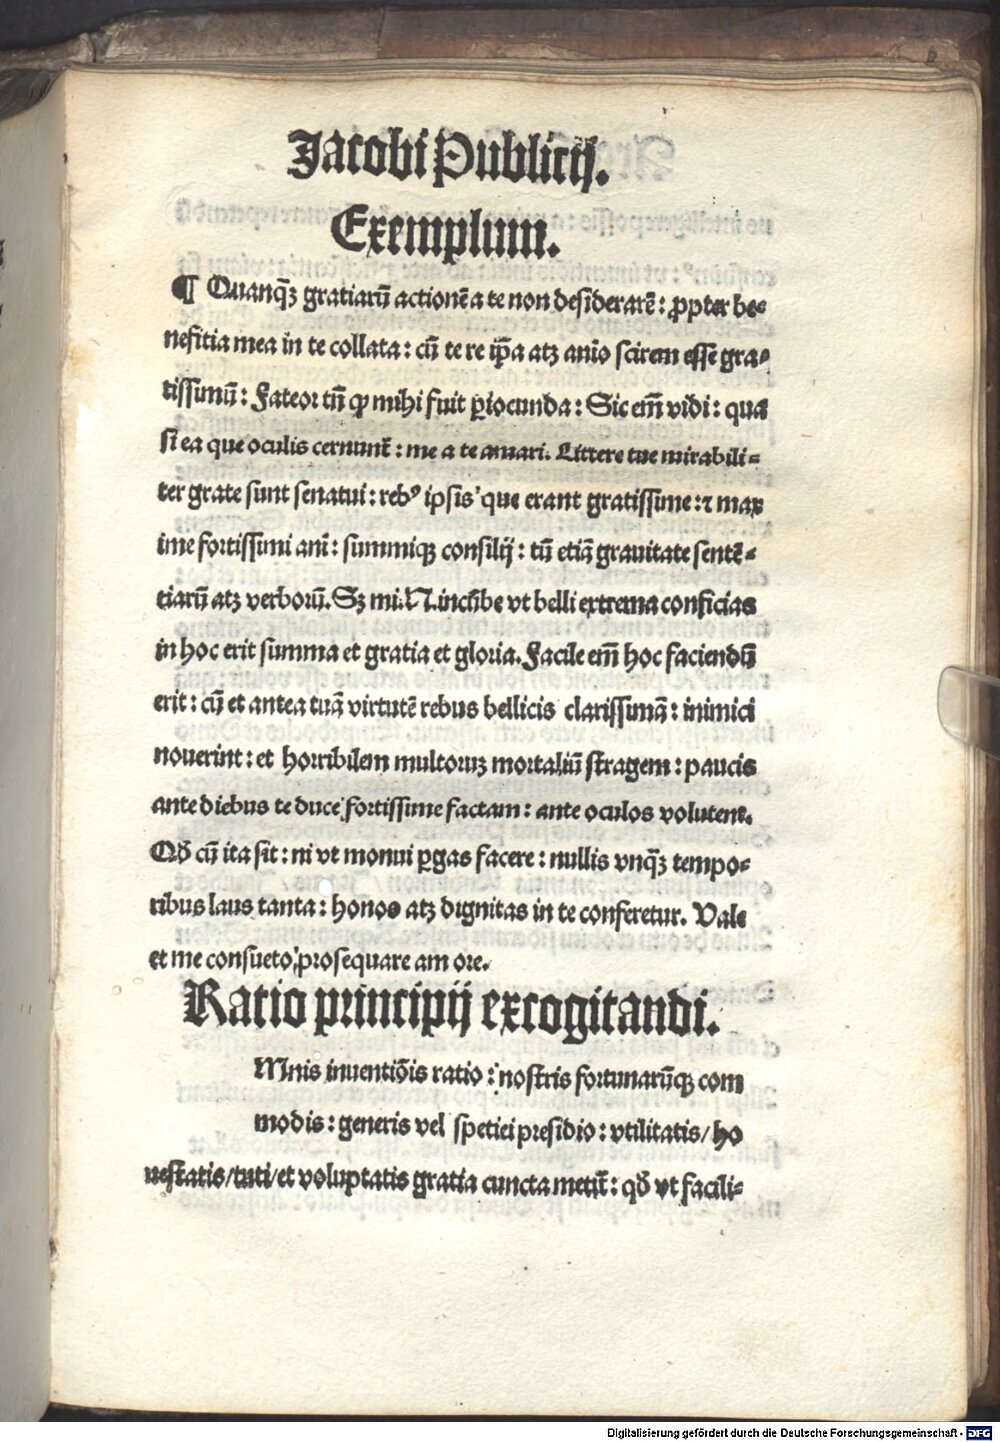 Jacobi Publicij.
Exemplum.
¶ Quanq̃ꝫ gratiarũ actionẽ a te non desiderarẽ: ꝓpter be-
nefitia mea in te collata: cũ te re ip̃a atꝫ anĩo scirem esse gra-
tissimũ: Fateor tñ ꝙ mihi fuit ꝑiocunda: Sic em̃ vidi: qua
si ea que oculis cernunt̃: me a te amari. Littere tue mirabili-
ter grate sunt senatui: rebꝰ ipsis que erant gratissime: ⁊ max
ime fortissimi ani: summiqꝫ consilij: tũ etiã grauitate sentẽ-
tiarũ atꝫ verborũ. Sꝫ mi. N. incũbe vt belli extrema conficias
in hoc erit summa et gratia et gloria. Facile em̃ hoc faciendũ
erit: cũ et antea tuã virtutẽ rebus bellicis clarissimã: inimici
nouerint: et horribilem multoruꝫ mortaliũ stragem: paucis
ante diebus te duce fortissime factam: ante oculos volutent.
Qđ cũ ita sit: ni vt monui ꝑgas facere: nullis vnq̃ꝫ tempo-
ribus laus tanta: honos atꝫ dignitas in te conferetur. Vale
et me consueto prosequare am ore.
Ratio principij excogitandi.
Mnis inuentiõis ratio: nostris fortunarũqꝫ com
modis: generis vel spetiei presidio: vtilitatis/ ho
nestatis/ tuti/ et voluptatis gratia cuncta metit̃: qđ vt facili-
Digitalisierung gefördert durch die Deutsche Forschungsgemeinschaft - DFG